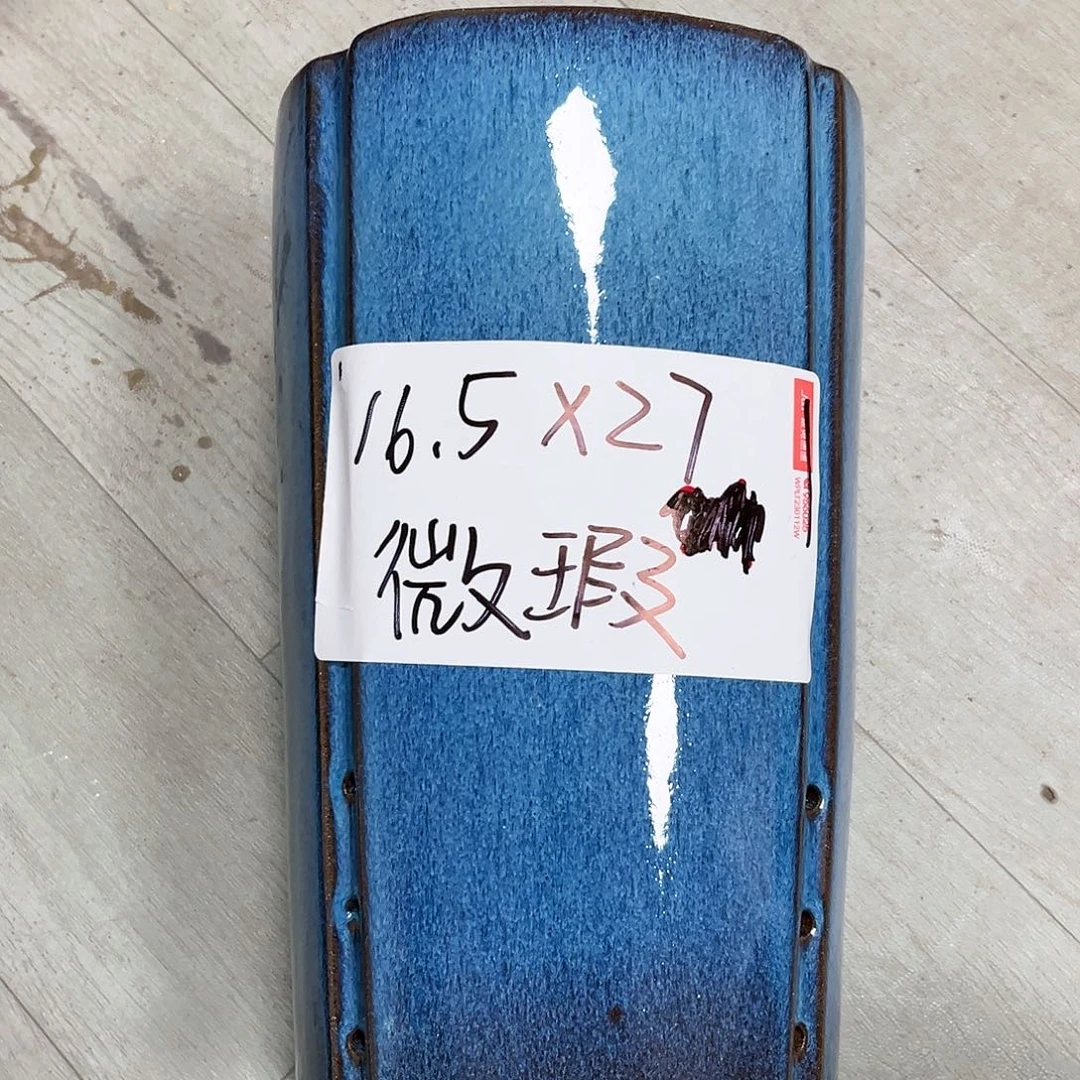 16.5 X27
微瑕